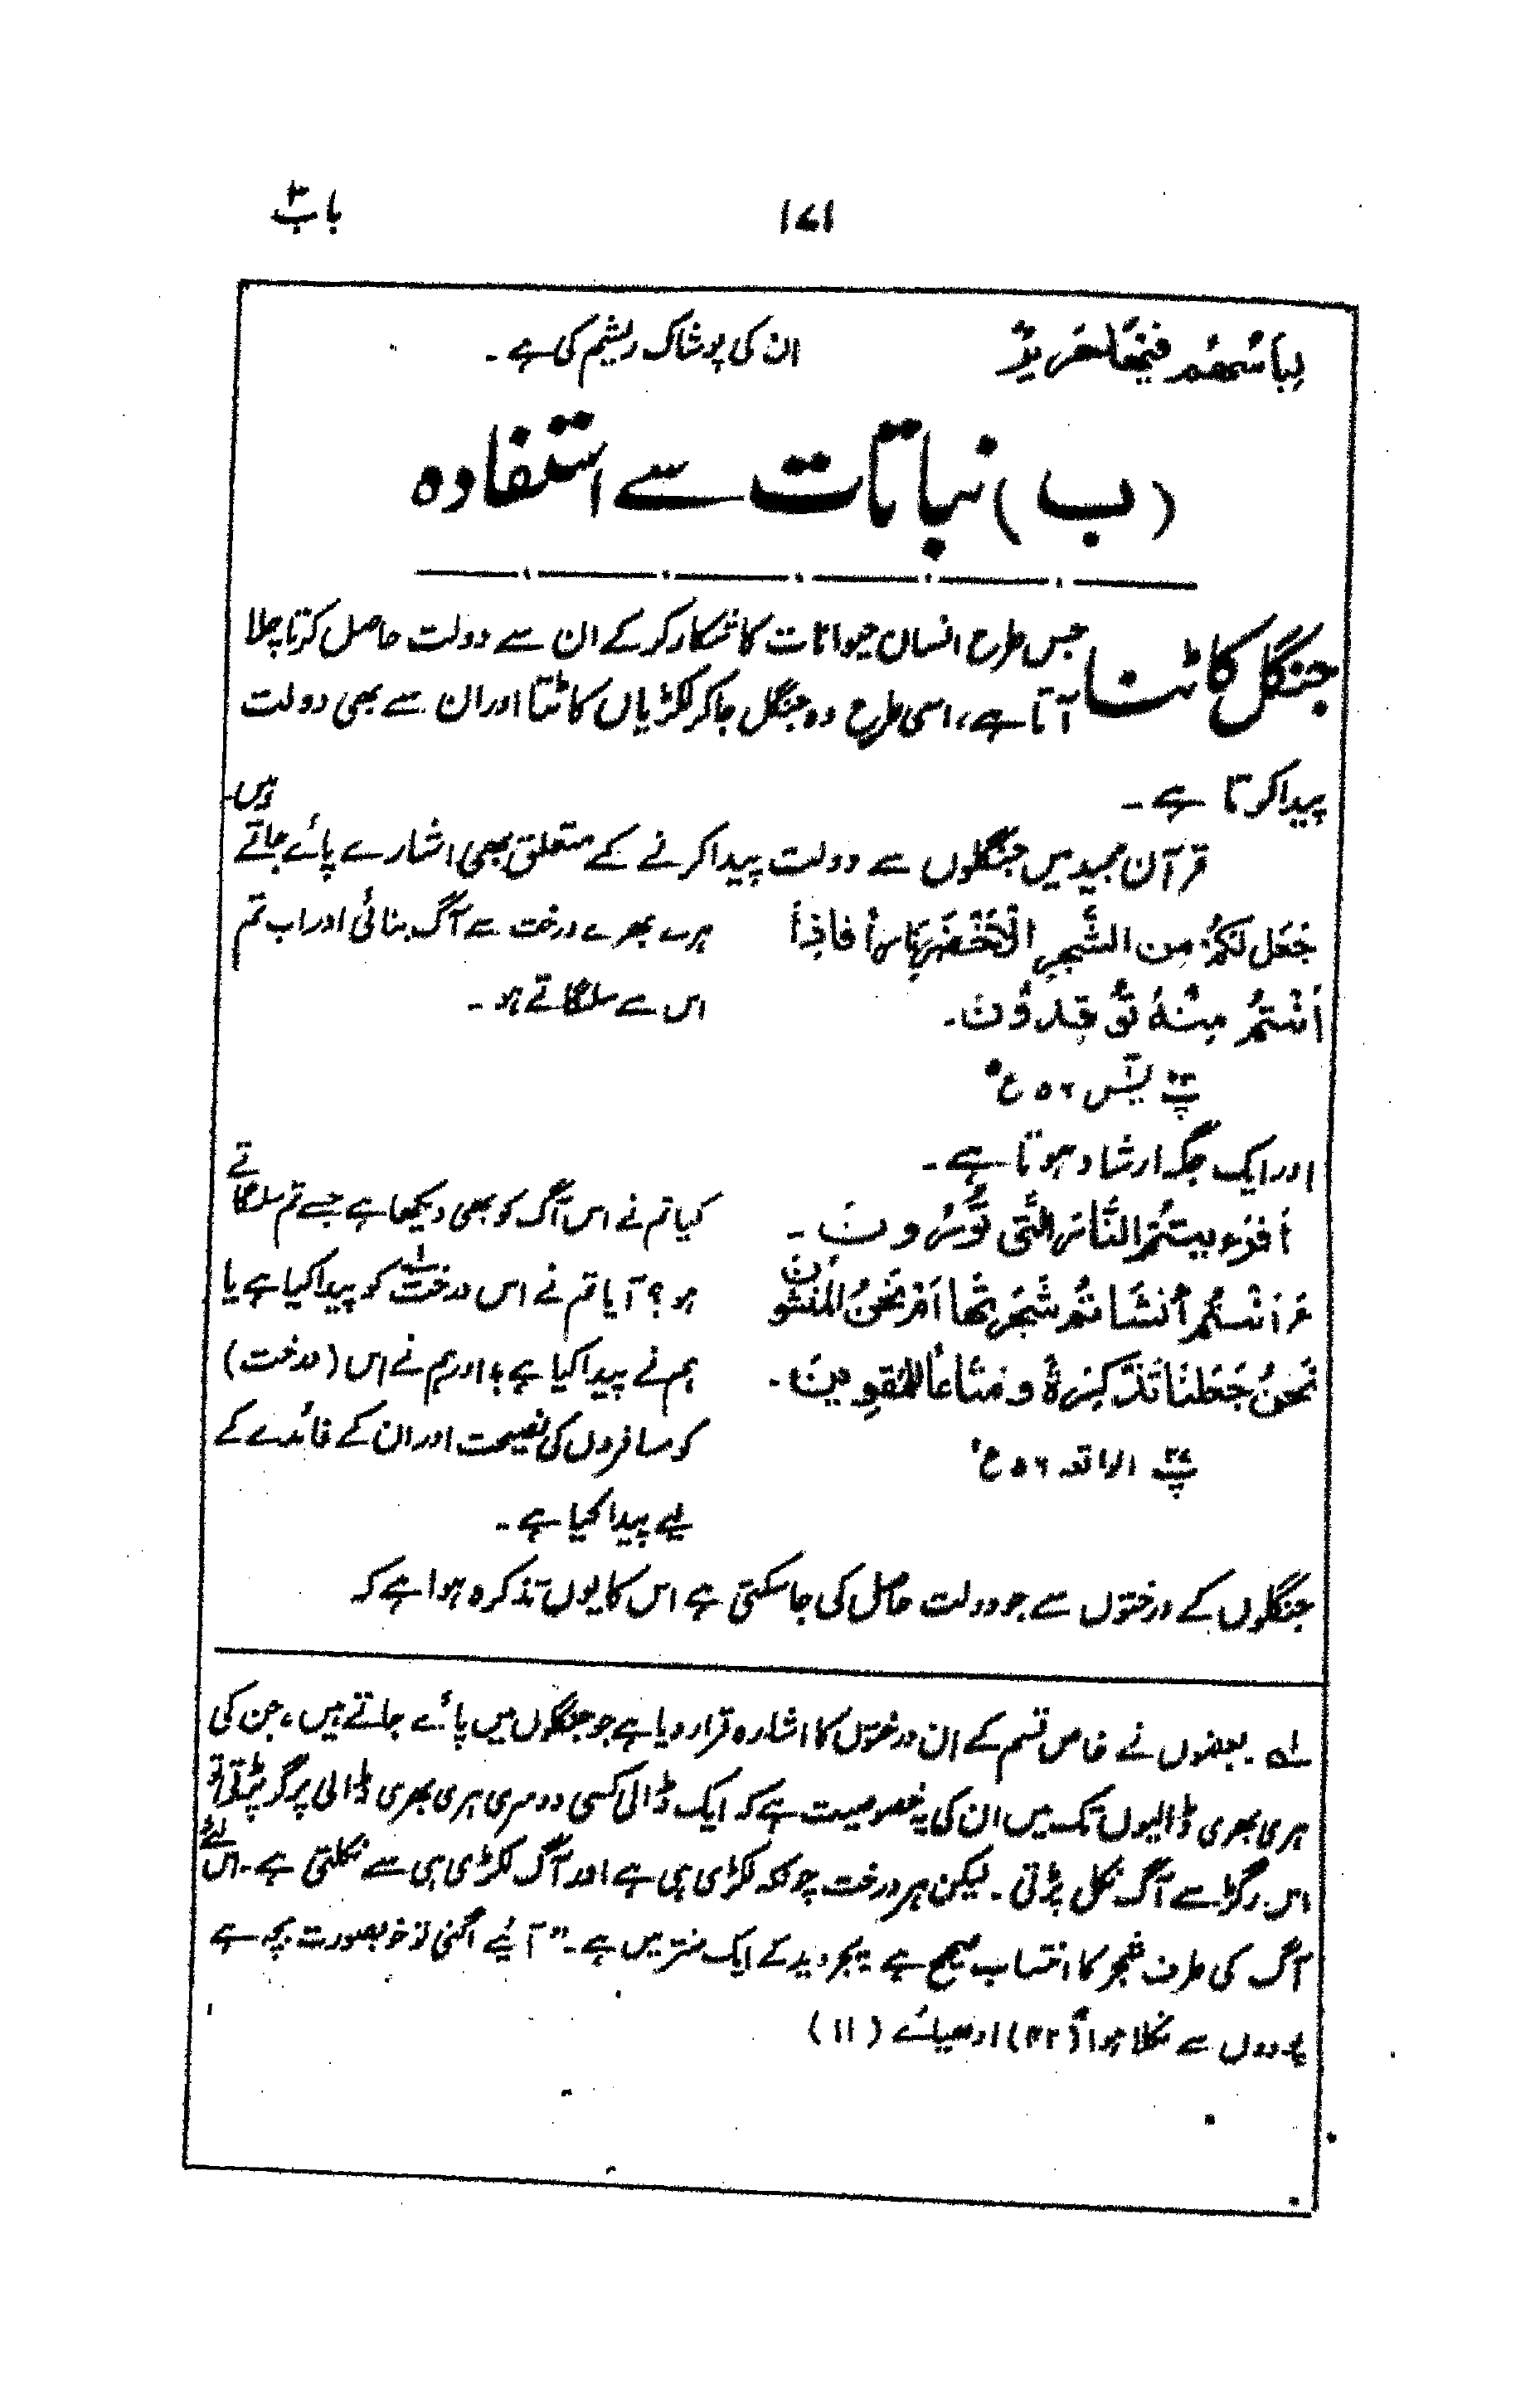 باب ۳
۱۷۱
لِبَاسُھُمْ فِیْھَا حَرِیْرٌ
ان کی پوشاک ریشم کی ہے ۔
(ب) نباتات سے استفادہ
جنگل کاٹنا
جس طرح انسان حیوانات کا شکار کر کے ان سے دولت حاصل کرتا چلا
آتا ہے، اسی طرح وہ جنگل جا کر لکڑیاں کاٹتا اور ان سے بھی دولت
پیدا کرتا ہے ۔
قرآن مجید میں جنگلوں سے دولت پیدا کرنے کے متعلق بھی اشارے پائے جاتے ہیں۔
جَعَلَ لَکُمْ مِنَ الشَّجَرِ الْاَخْضَرِ نَارًا فَاِذَا
اَنْتُمْ مِنْہُ تُوْقِدُوْنَ ۔
پ۲۳ یٰسٓ ۵۶ ع ۵
ہرے بھرے درخت سے آگ بنائی اور اب تم
اس سے سلگاتے ہو ۔
اور ایک جگہ ارشاد ہوتا ہے ۔
اَفَرَءَیْتُمُ النَّارَ الَّتِی تُوْرُوْنَ ۔
ءَاَنْتُمْ اَنْشَاْتُمْ شَجَرَتَھَا اَمْ نَحْنُ الْمُنْشِوُنَ
نَحْنُ جَعَلْنَا تَذْکِرَۃً وَ مَتَاعًا لِلْمُقْوِیْنَ ۔
پ۲۷ الواقعہ ۵۶ ع ۲
کیا تم نے اس آگ کو بھی دیکھا ہے جسے تم سلگاتے
ہو ؟ آیا تم نے اس درخت۱؎ کو پیدا کیا ہے یا
ہم نے پیدا کیا ہے، اور ہم نے اس (درخت)
کو مسافروں کی نصیحت اور ان کے فائدے کے
لیے پیدا کیا ہے ۔
جنگلوں کے درختوں سے جو دولت حاصل کی جا سکتی ہے اس کا یوں تذکرہ ہوا ہے کہ
۱؎ ۔ بعضوں نے خاص قسم کے ان درختوں کا اشارہ قرار دیا ہے جو جنگلوں میں پائے جاتے ہیں، جن کی
ہری بھری ڈالیوں تک میں ان کی یہ خصوصیت ہے کہ ایک ڈالی کسی دوسری ہری بھری ڈالی پر گر پڑتی تو
اس رگڑ سے آگ نکل پڑتی ۔ لیکن ہر درخت چونکہ لکڑی ہی ہے اور آگ لکڑی ہی سے نکلتی ہے ۔ اس لئے
آگ کی طرف شجر کا انتساب صحیح ہے یجروید کے ایک منتر میں ہے ۔ ”آیئے اگنی تو خوبصورت بچہ ہے
پودوں سے نکلا ہوا“ (۴۳) ادھیائے (۱۱)